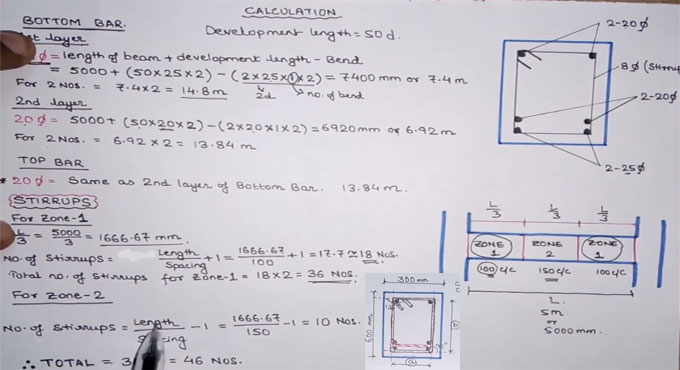 CALCULATION
BOTTOM BAR.
Development length = 50d.
1st layer
ϕ = length of beam + development length - Bend
= 5000 + (50×25×2) - (2×25×1×2) = 7400 mm or 7.4 m
2d no. of bend
For 2 Nos. = 7.4×2 = 14.8 m
2nd layer
20ϕ = 5000 + (50×20×2) - (2×20×1×2) = 6920 mm or 6.92 m
For 2 Nos. = 6.92 × 2 = 13.84 m
TOP BAR
* 20ϕ = Same as 2nd layer of Bottom Bar. 13.84 m.
STIRRUPS
For Zone-1
L/3 = 5000/3 = 1666.67 mm
No. of Stirrups = Length/Spacing + 1 = 1666.67/100 + 1 = 17.7 ≃ 18 Nos.
Total no. of Stirrups for Zone-1 = 18 × 2 = 36 Nos.
For Zone-2
No. of Stirrups = Length/Spacing - 1 = 1666.67/150 - 1 = 10 Nos.
∴ TOTAL = 3 = 46 Nos.
2-20ϕ
8ϕ (Stirru
2-20ϕ
2-25ϕ
L/3 L/3 L/3
ZONE 1 ZONE 2 ZONE 1
100 c/c 150 c/c 100 c/c
L.
5m
or
5000 mm.
300 mm
600 mm
(a)
(b)